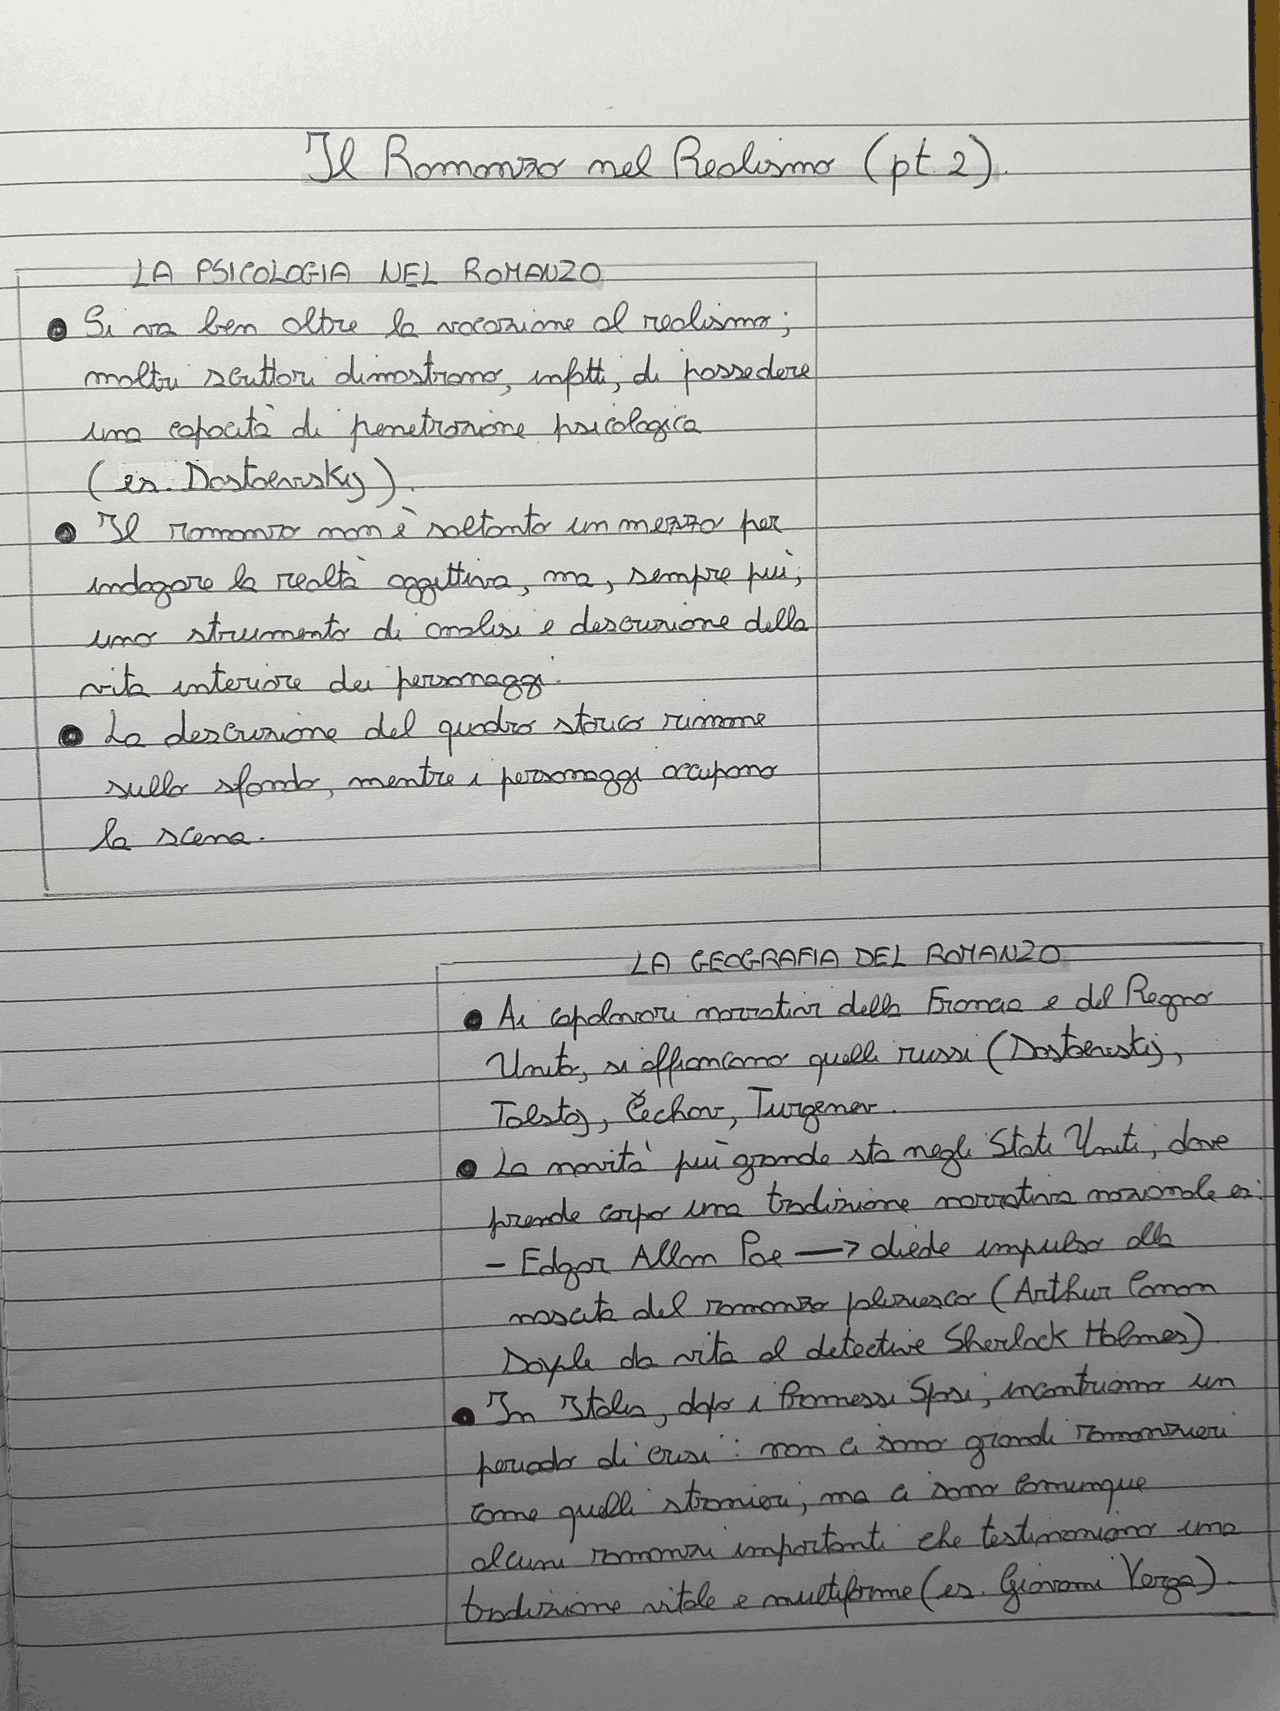 Il Romanzo nel Realismo (pt.2).
LA PSICOLOGIA NEL ROMANZO
Si va ben oltre la vocazione al realismo;
molti scrittori dimostrano, infatti, di possedere
una capacità di penetrazione psicologica
(es. Dostoevskij).
Il romanzo non è soltanto un mezzo per
indagare la realtà oggettiva, ma, sempre più,
uno strumento di analisi e descrizione della
vita interiore dei personaggi.
La descrizione del quadro storico rimane
sullo sfondo, mentre i personaggi occupano
la scena.
LA GEOGRAFIA DEL ROMANZO
Ai capolavori narrativi della Francia e del Regno
Unito, si affiancano quelli russi (Dostoevskij,
Tolstoj, Čechov, Turgenev.
La novità più grande sta negli Stati Uniti, dove
prende corpo una tradizione narrativa nazionale es:
- Edgar Allan Poe → diede impulso alla
nascita del romanzo poliziesco (Arthur Conan
Doyle da vita al detective Sherlock Holmes)
In Italia, dopo i Promessi Sposi, incontriamo un
periodo di crisi: non ci sono grandi romanzieri
come quelli stranieri, ma ci sono comunque
alcuni romanzi importanti che testimoniano una
tradizione vitale e multiforme (es. Giovanni Verga).